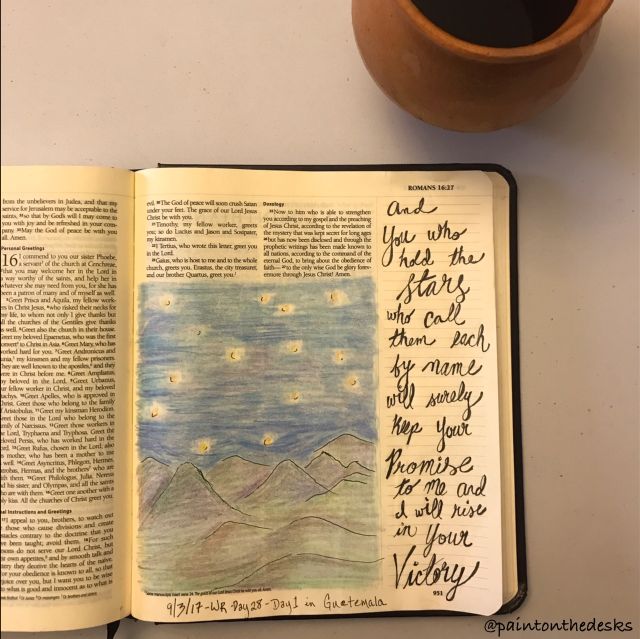 from the unbelievers in Judea, and that my
service for Jerusalem may be acceptable to the
saints, 32so that by God's will I may come to
you with joy and be refreshed in your com-
pany. 33May the God of peace be with you
all. Amen.
Personal Greetings
16 I commend to you our sister Phoebe,
a servant of the church at Cenchreae,
2that you may welcome her in the Lord in
a way worthy of the saints, and help her in
whatever she may need from you, for she has
been a patron of many and of myself as well.
3Greet Prisca and Aquila, my fellow work-
ers in Christ Jesus, 4who risked their necks for
my life, to whom not only I give thanks but
all the churches of the Gentiles give thanks
as well. 5Greet also the church in their house.
Greet my beloved Epaenetus, who was the first
convert to Christ in Asia. 6Greet Mary, who has
worked hard for you. 7Greet Andronicus and
my kinsmen and my fellow prisoners.
They are well known to the apostles, and they
were in Christ before me. 8Greet Ampliatus,
my beloved in the Lord. 9Greet Urbanus,
our fellow worker in Christ, and my beloved
Stachys. 10Greet Apelles, who is approved in
Christ. Greet those who belong to the family
of Aristobulus. 11Greet my kinsman Herodion.
Greet those in the Lord who belong to the
family of Narcissus. 12Greet those workers in
the Lord, Tryphaena and Tryphosa. Greet the
beloved Persis, who has worked hard in the
Lord. 13Greet Rufus, chosen in the Lord; also
his mother, who has been a mother to me
as well. 14Greet Asyncritus, Phlegon, Hermes,
Patrobas, Hermas, and the brothers who are
with them. 15Greet Philologus, Julia, Nereus
and his sister, and Olympas, and all the saints
who are with them. 16Greet one another with a
holy kiss. All the churches of Christ greet you.
Final Instructions and Greetings
17I appeal to you, brothers, to watch out
for those who cause divisions and create
obstacles contrary to the doctrine that you
have been taught; avoid them. 18For such
persons do not serve our Lord Christ, but
their own appetites, and by smooth talk and
flattery they deceive the hearts of the naive.
19For your obedience is known to all, so that
I rejoice over you, but I want you to be wise
as to what is good and innocent as to what is
ROMANS 16:27
evil. 20The God of peace will soon crush Satan
under your feet. The grace of our Lord Jesus
Christ be with you.
21Timothy, my fellow worker, greets
you; so do Lucius and Jason and Sosipater,
my kinsmen.
22I Tertius, who wrote this letter, greet you
in the Lord.
23Gaius, who is host to me and to the whole
church, greets you. Erastus, the city treasurer,
and our brother Quartus, greet you.
Doxology
25Now to him who is able to strengthen
you according to my gospel and the preaching
of Jesus Christ, according to the revelation of
the mystery that was kept secret for long ages
26but has now been disclosed and through the
prophetic writings has been made known to
all nations, according to the command of the
eternal God, to bring about the obedience of
faith— 27to the only wise God be glory forev-
ermore through Jesus Christ! Amen.
And
You who
hold the
stars
who call
them each
by name
will surely
keep your
Promise
to me and
I will rise
in Your
Victory
951
9/3/17-WR-Day28-Day1 in Guatemala
@paintonthedesks